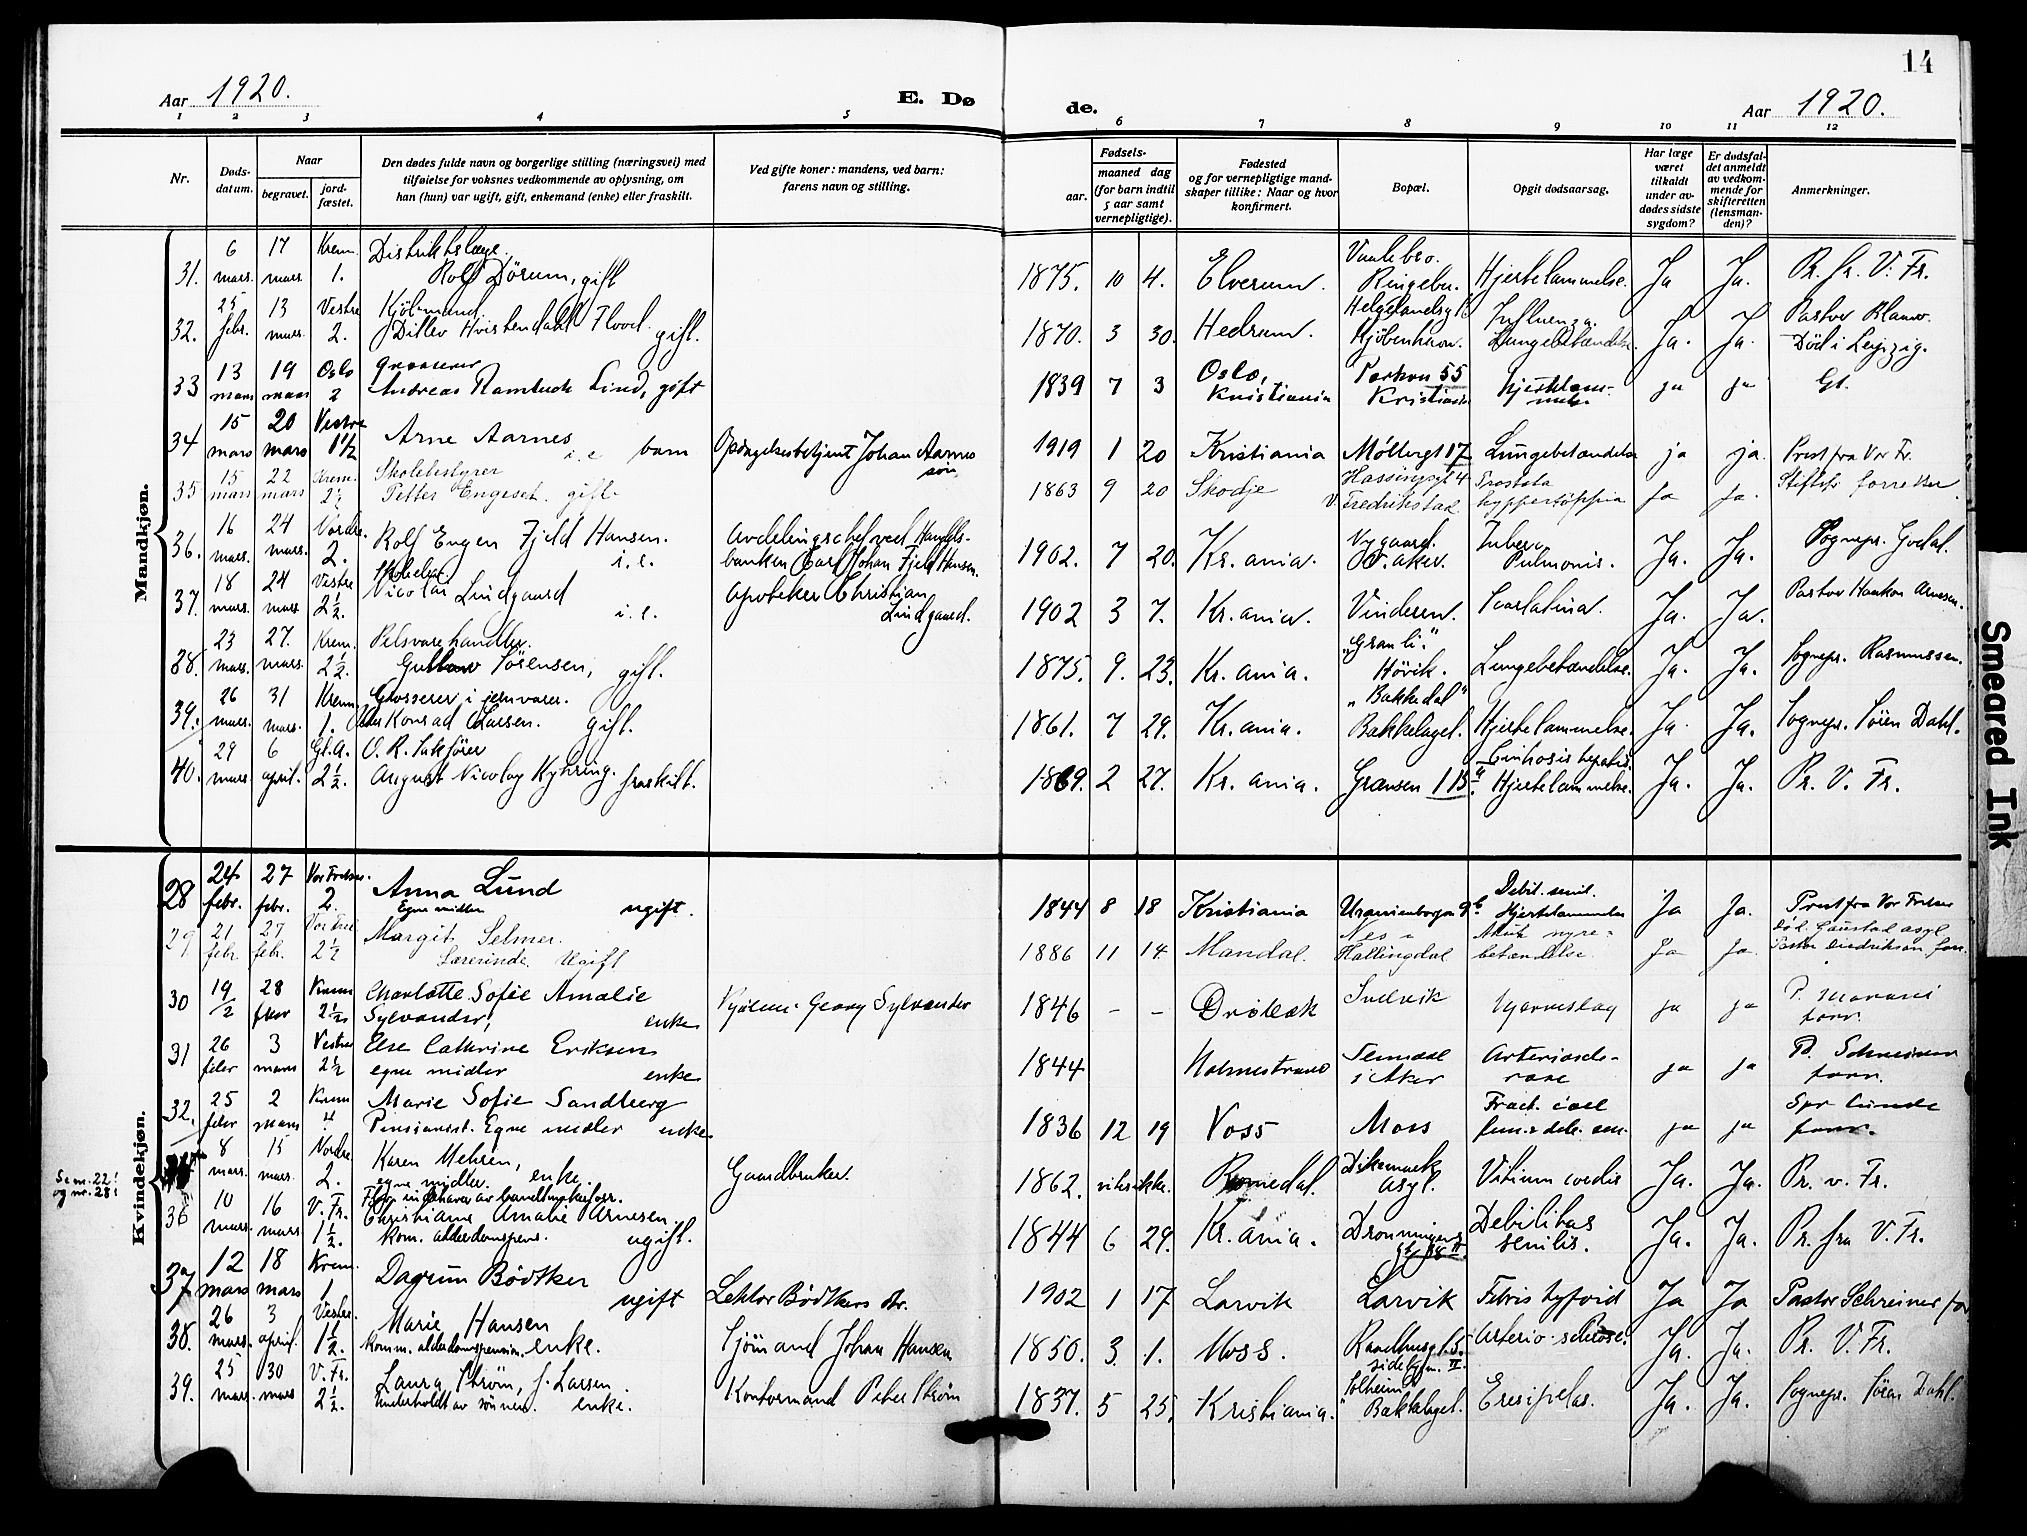 14
Aar 1920.
E. Dø
de.
Aar 1920.
1 2 3 4 5 6 7 8 9 10 11 12
Nr.
Døds-
datum.
Naar
begravet.
jord-
fæstet.
Den dødes fulde navn og borgerlige stilling (næringsvei) med
tilføielse for voksnes vedkommende av oplysning, om
han (hun) var ugift, gift, enkemand (enke) eller fraskilt.
Ved gifte koner: mandens, ved barn:
farens navn og stilling.
Fødsels-
aar.
maaned dag
(for barn indtil
5 aar samt
vernepligtige).
Fødested
og for vernepligtige mand-
skaper tillike: Naar og hvor
konfirmert.
Bopæl.
Opgit dødsaarsag.
Har læge
været
tilkaldt
under av-
dødes sidste
sygdom?
Er dødsfal-
det anmeldt
av vedkom-
mende for
skifteretten
(lensman-
den)?
Anmerkninger.
Mandkjøn.
6 17 Krem. Distriktslæge.
31. mars. mars. 1. Rolf Dørum, gift 1875. 10 4. Elverum. Ringebu. Hjertelammelse. Ja Ja. Pr. fr. V. Fr.
25 13 Vestre Kjøbmand. Influenza.
32. febr. mars. 2. Ditlev Hvistendahl Flood. gift. 1870. 3 30. Hedrum. Kjøbenhavn. Lungebetændelse. Ja. Ja. Død i Leipzig.
13 19 Oslo Grosserer Oslo,
33 mars mars 2 Andreas Lind, gift 1839 7 3 Kristiania Kristiania Hjertelam-
melse ja ja Gl.
15 20 Vestre
34 mars mars 1 1/2 Arne Aarnes i.e. barn Opdagelsesbetjent Johan Aarnes
søn 1919 1 20 Kristiania Møllergt 17 Lungebetændelse ja ja. Prest fra Vor Fr.
15 22 Krem. Skolebestyrer
35 mars mars 2 1/2 Petter Engeset. gift. 1863 9 20 Skodje Fredrikstad Prostata Ja Ja.
16 24 Vordre. Avdelingschef ved Handels-
36. mars. mars. 2. Rolf Engen Fjeld Hansen. i.e. banken Carl Johan Fjeld Hansen. 1902. 7 20. Kr.ania. V. Aker. Pulmonis. Ja. Ja. Sognepr. Gjedal.
18 24 Vestre Skoleelev Apoteker Christian
37. mars. mars 2 1/2. Nicolai Lindgaard i.e. Lindgaard. 1902 3 7. Kr.ania. Vinderen. Scarlatina. Ja. Ja. Pastor Haakon Arnesen.
23 27. Krem. Pelsvarehandler. „Granli“
38. mars. mars. 2 1/2. Gustav Sørensen, gift. 1875. 9. 23. Kr.ania. Høvik. Lungebetændelse. Ja. Ja. Sognepr. Rasmussen.
26 31 Krem. Grosserer i jernvarer. „Bakkedal“
39. mars. mars. 1. Konrad Larsen. gift. 1861. 7 29. Kr.ania. Bækkelaget. Hjertelammelse. Ja. Ja. Sognepr. Søren Dahl.
29 6 Gl.A. O.R. Sakfører
40. mars. april. 2 1/2. August Nicolay Kyhring. fraskilt. 1869. 2 27. Kr.ania. Grænsen Hjertelammelse. Ja. Ja. Pr. V. Fr.
Kvindekjøn.
24 27 Vor Frelser. Debil. senil.
28 febr. febr. 2. Anna Lund
Egne midler ugift. 1844 8 18 Kristiania Uranienborgvn 9b Hjertelammelse Ja Ja. Prest fra Vor Frelser
21 27 Margit Selmer. Nes i Akut nyre-
29 febr. febr. 2 1/2 Lærerinde. Ugift 1886 11 14 Mandal. Hallingdal betændelse Ja Ja.
19 28 Krem Charlotte Sofie Amalie
30 /2 febr 2 1/2 Sylvander, enke Georg Sylvander 1846 - - Drøbak Hjerneslag ja ja
26 3 Vestre Else Cathrine Eriksen
31 febr mars 2 1/2 egne midler enke 1844 Holmestrand i Aker Arterioscle-
rose ja ja forr.
25 2 Krem Marie Sofie Sandberg
32. febr mars 4 Pensionist. Egne midler enke. 1836 12 19 Voss Moss Fract. coll
fem. ja ja Spr Lunde
forr.
Se nr. 22!
og nr. 28!
8 15 Vordre Karen Mehren,
mars. mars. 2. egne midler. enke. Gaardbruker. 1862. vites ikke. Romedal. Dikemark
asyl. Vitium cordis Ja. Ja. Pr. v. Fr.
10 16 V. Fr.
36 mars. mars 1 1/2. Christiane Amalie Arnesen.
kom. alderdomspens. ugift. 1844 6 29. Kr.ania. Dronningens
gt. Debilitas
senilis. Ja. Ja. Pr. fra V. Fr.
12 18 Krem.
37 mars mars 1 Dagrun Bødtker ugift Lektor Bødtkers dtr. 1902 1 17 Larvik Larvik Febris tyfoid Ja Ja Pastor Schreiner forr
26 3 Vestre. Marie Hansen
38. mars. april. 1 1/2. komm. alderdomspension. enke. Sjømand Johan Hansen 1850. 3. 1. Moss. Raadhusgt. 5.
sidebygn. II. Arterio-sclerose. Ja. Ja. Pr. V. Fr.
25 30 V. Fr. Laura Strøm, f. Larsen. „Solheim“
39. mars. mars 2 1/2. Underholdt av sønnen. enke. Kontormand Peter Strøm 1837. 5 25. Kristiania. Bækkelaget. Eresipelas. Ja. Ja. Sognepr. Søren Dahl.
Smeared Ink